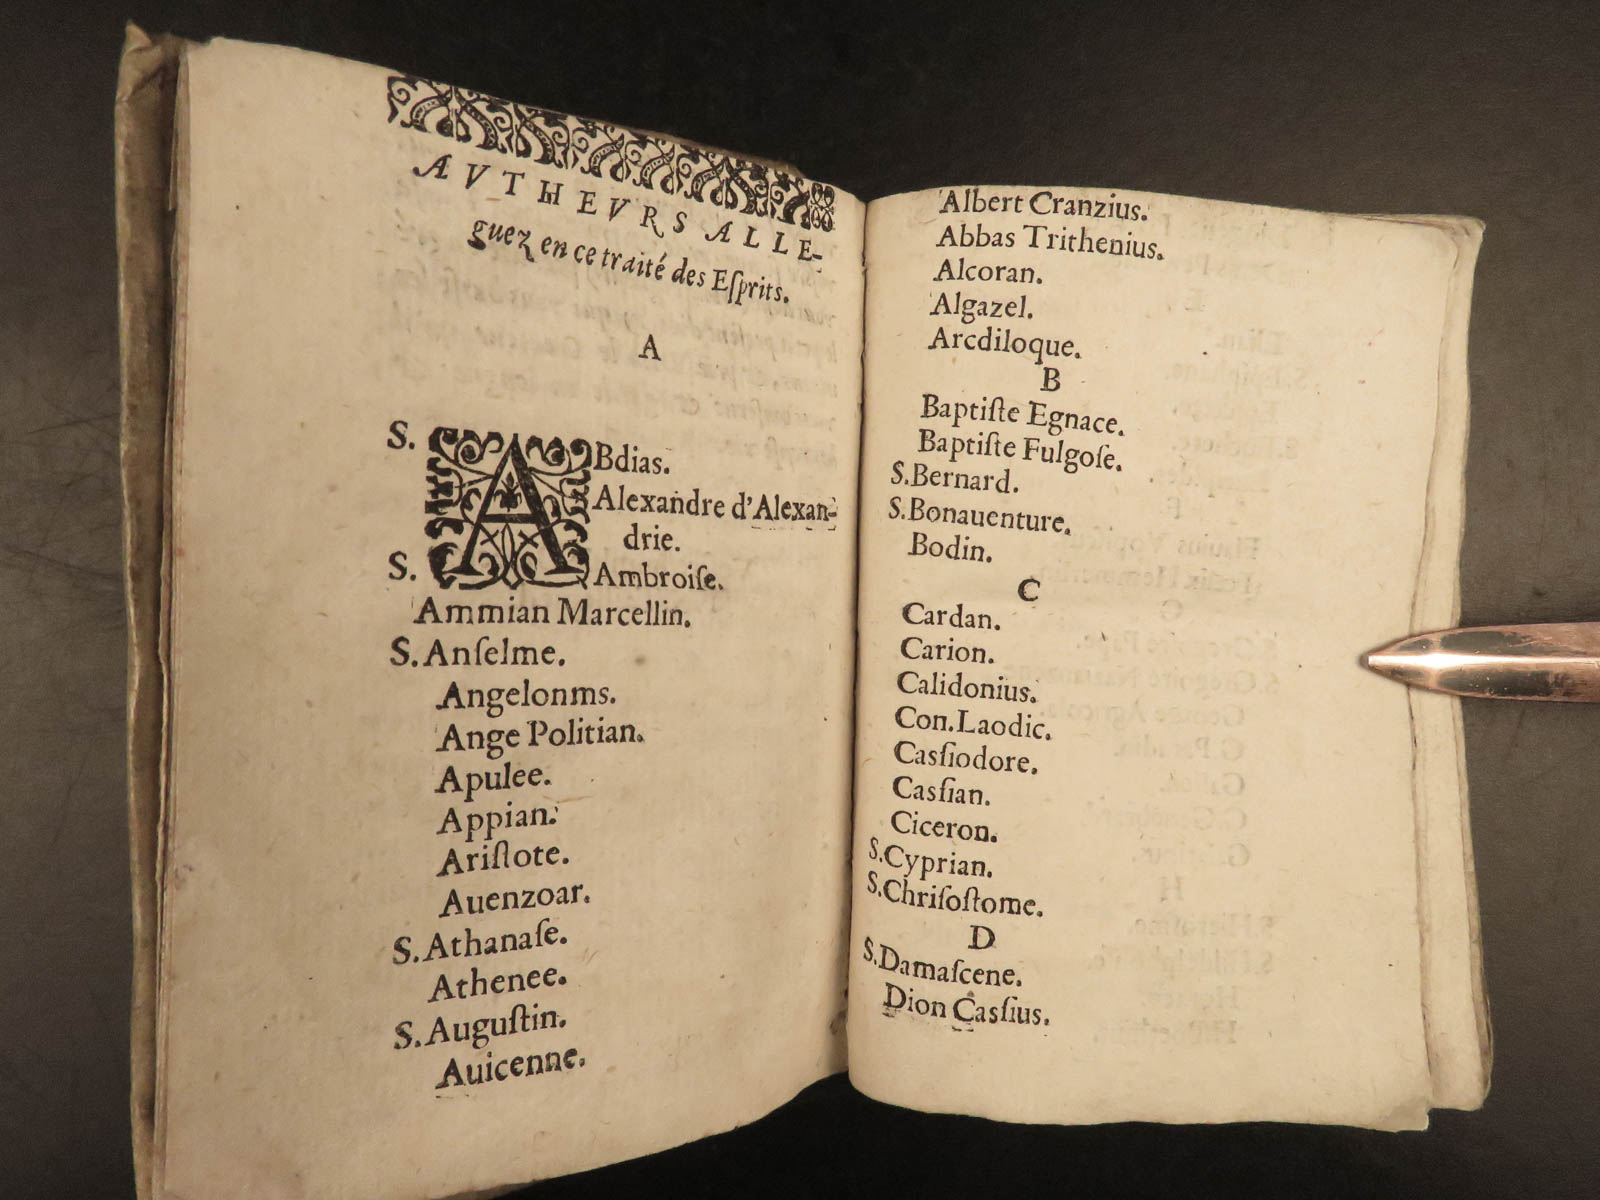 AVTHEVRS ALLE-
guez en ce traité des Eſprits.
A
S. ABdias.
Alexandre d'Alexan-
drie.
S. Ambroiſe.
Ammian Marcellin.
S. Anſelme.
Angelonms.
Ange Politian.
Apulee.
Appian.
Ariſtote.
Auenzoar.
S. Athanaſe.
Athenee.
S. Auguſtin.
Auicenne.
Albert Cranzius.
Abbas Trithenius.
Alcoran.
Algazel.
Arcdiloque.
B
Baptiſte Egnace.
Baptiſte Fulgoſe.
S. Bernard.
S. Bonauenture.
Bodin.
C
Cardan.
Carion.
Calidonius.
Con. Laodic.
Caſſiodore.
Caſſian.
Ciceron.
S. Cyprian.
S. Chriſoſtome.
D
S. Damaſcene.
Dion Caſſius.